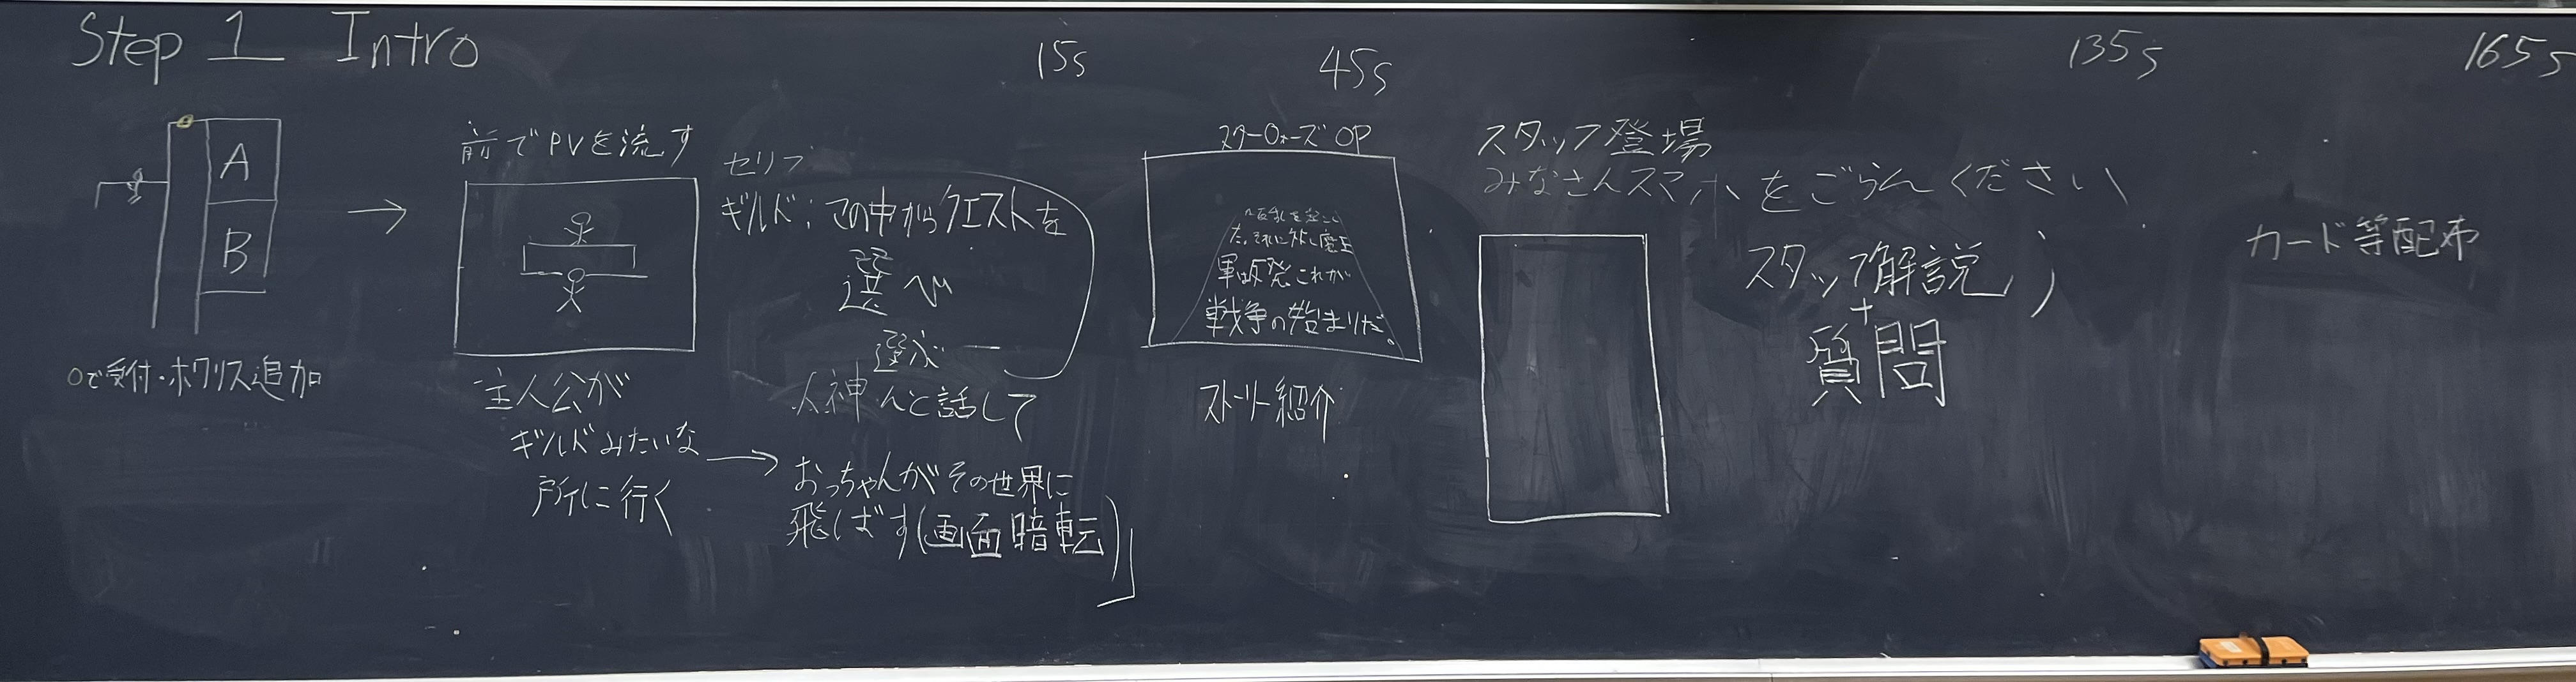 Step 1 Intro
15s
45s
135s
165s
A
B
○で受付・ホワリス追加
前でPVを流す
主人公が
ギルドみたいな
所に行く
セリフ
ギルド:この中からクエストを
選べ
選ぶ
と話して
おっちゃんがその世界に
飛ばす(画面暗転)
スターウォーズOP
軍は反発これが
戦争の始まりだ。
ストーリー紹介
スタッフ登場
みなさんスマホをごらんください
スタッフ解説
+
質問
カード等配布